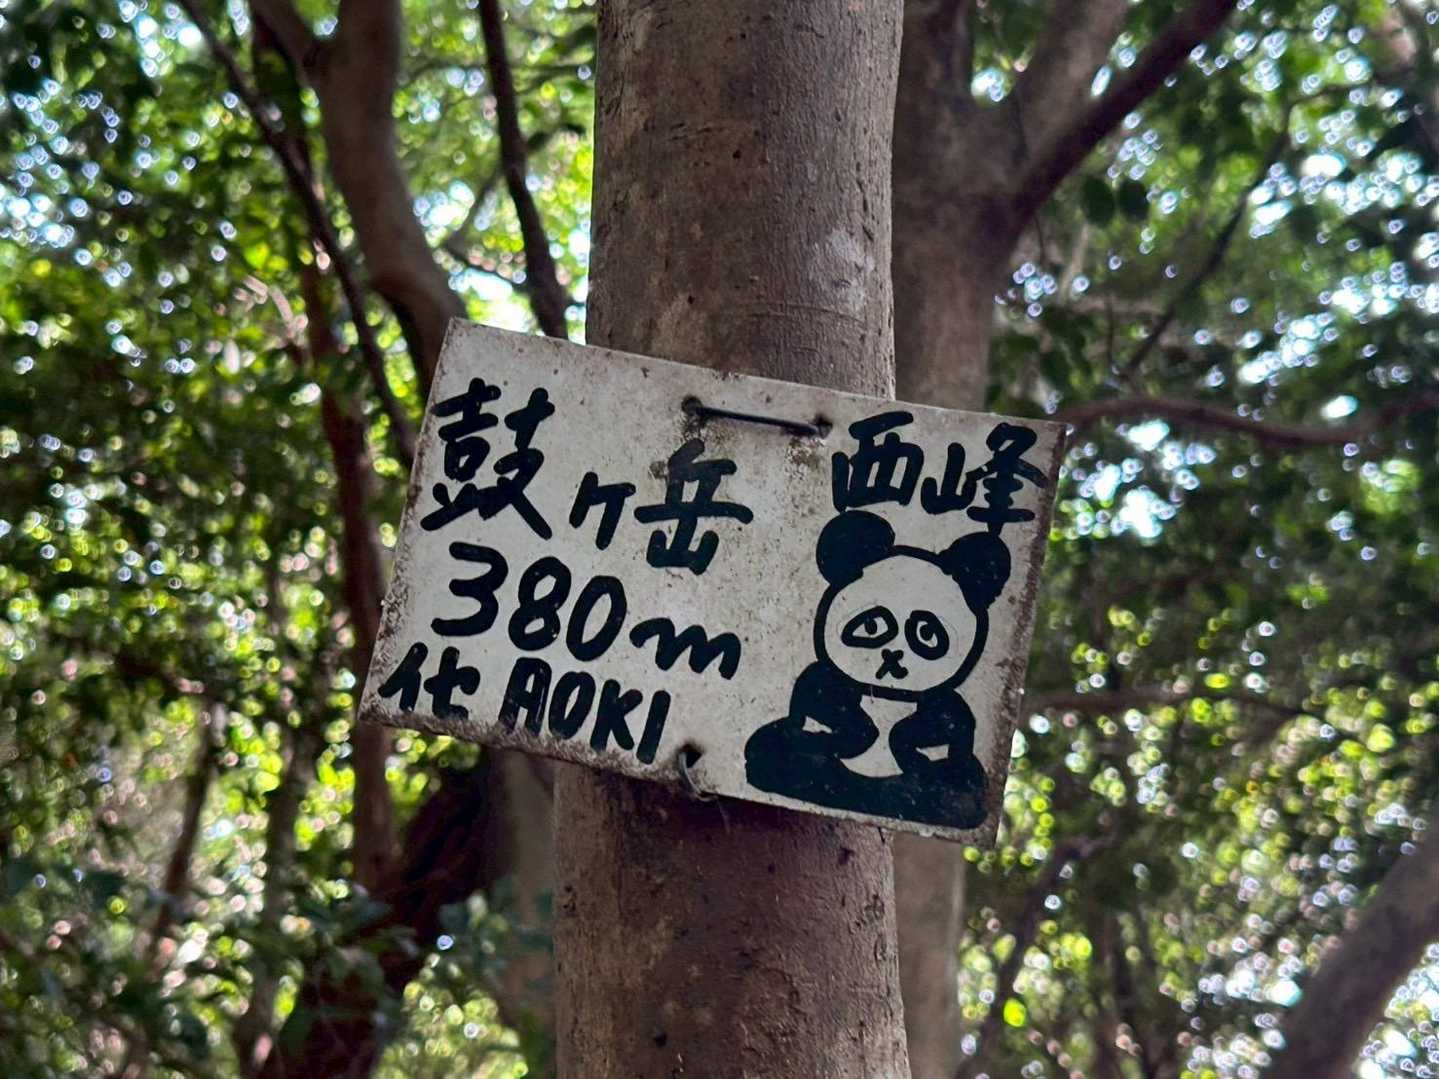 鼓ヶ岳 西峰
380m
化 AOKI